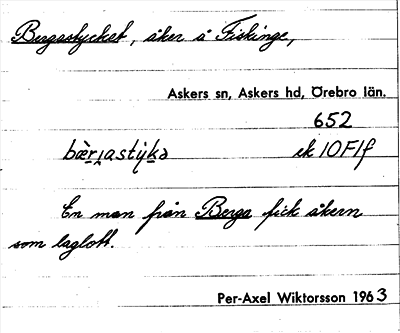 Bergastycket, åker å Fiskinge,
Askers sn, Askers hd, Örebro län.
652
bæ̀ri̯astỳkə ek 10F1f
En man från Berga fick åkern
som laglott.
Per-Axel Wiktorsson 1963